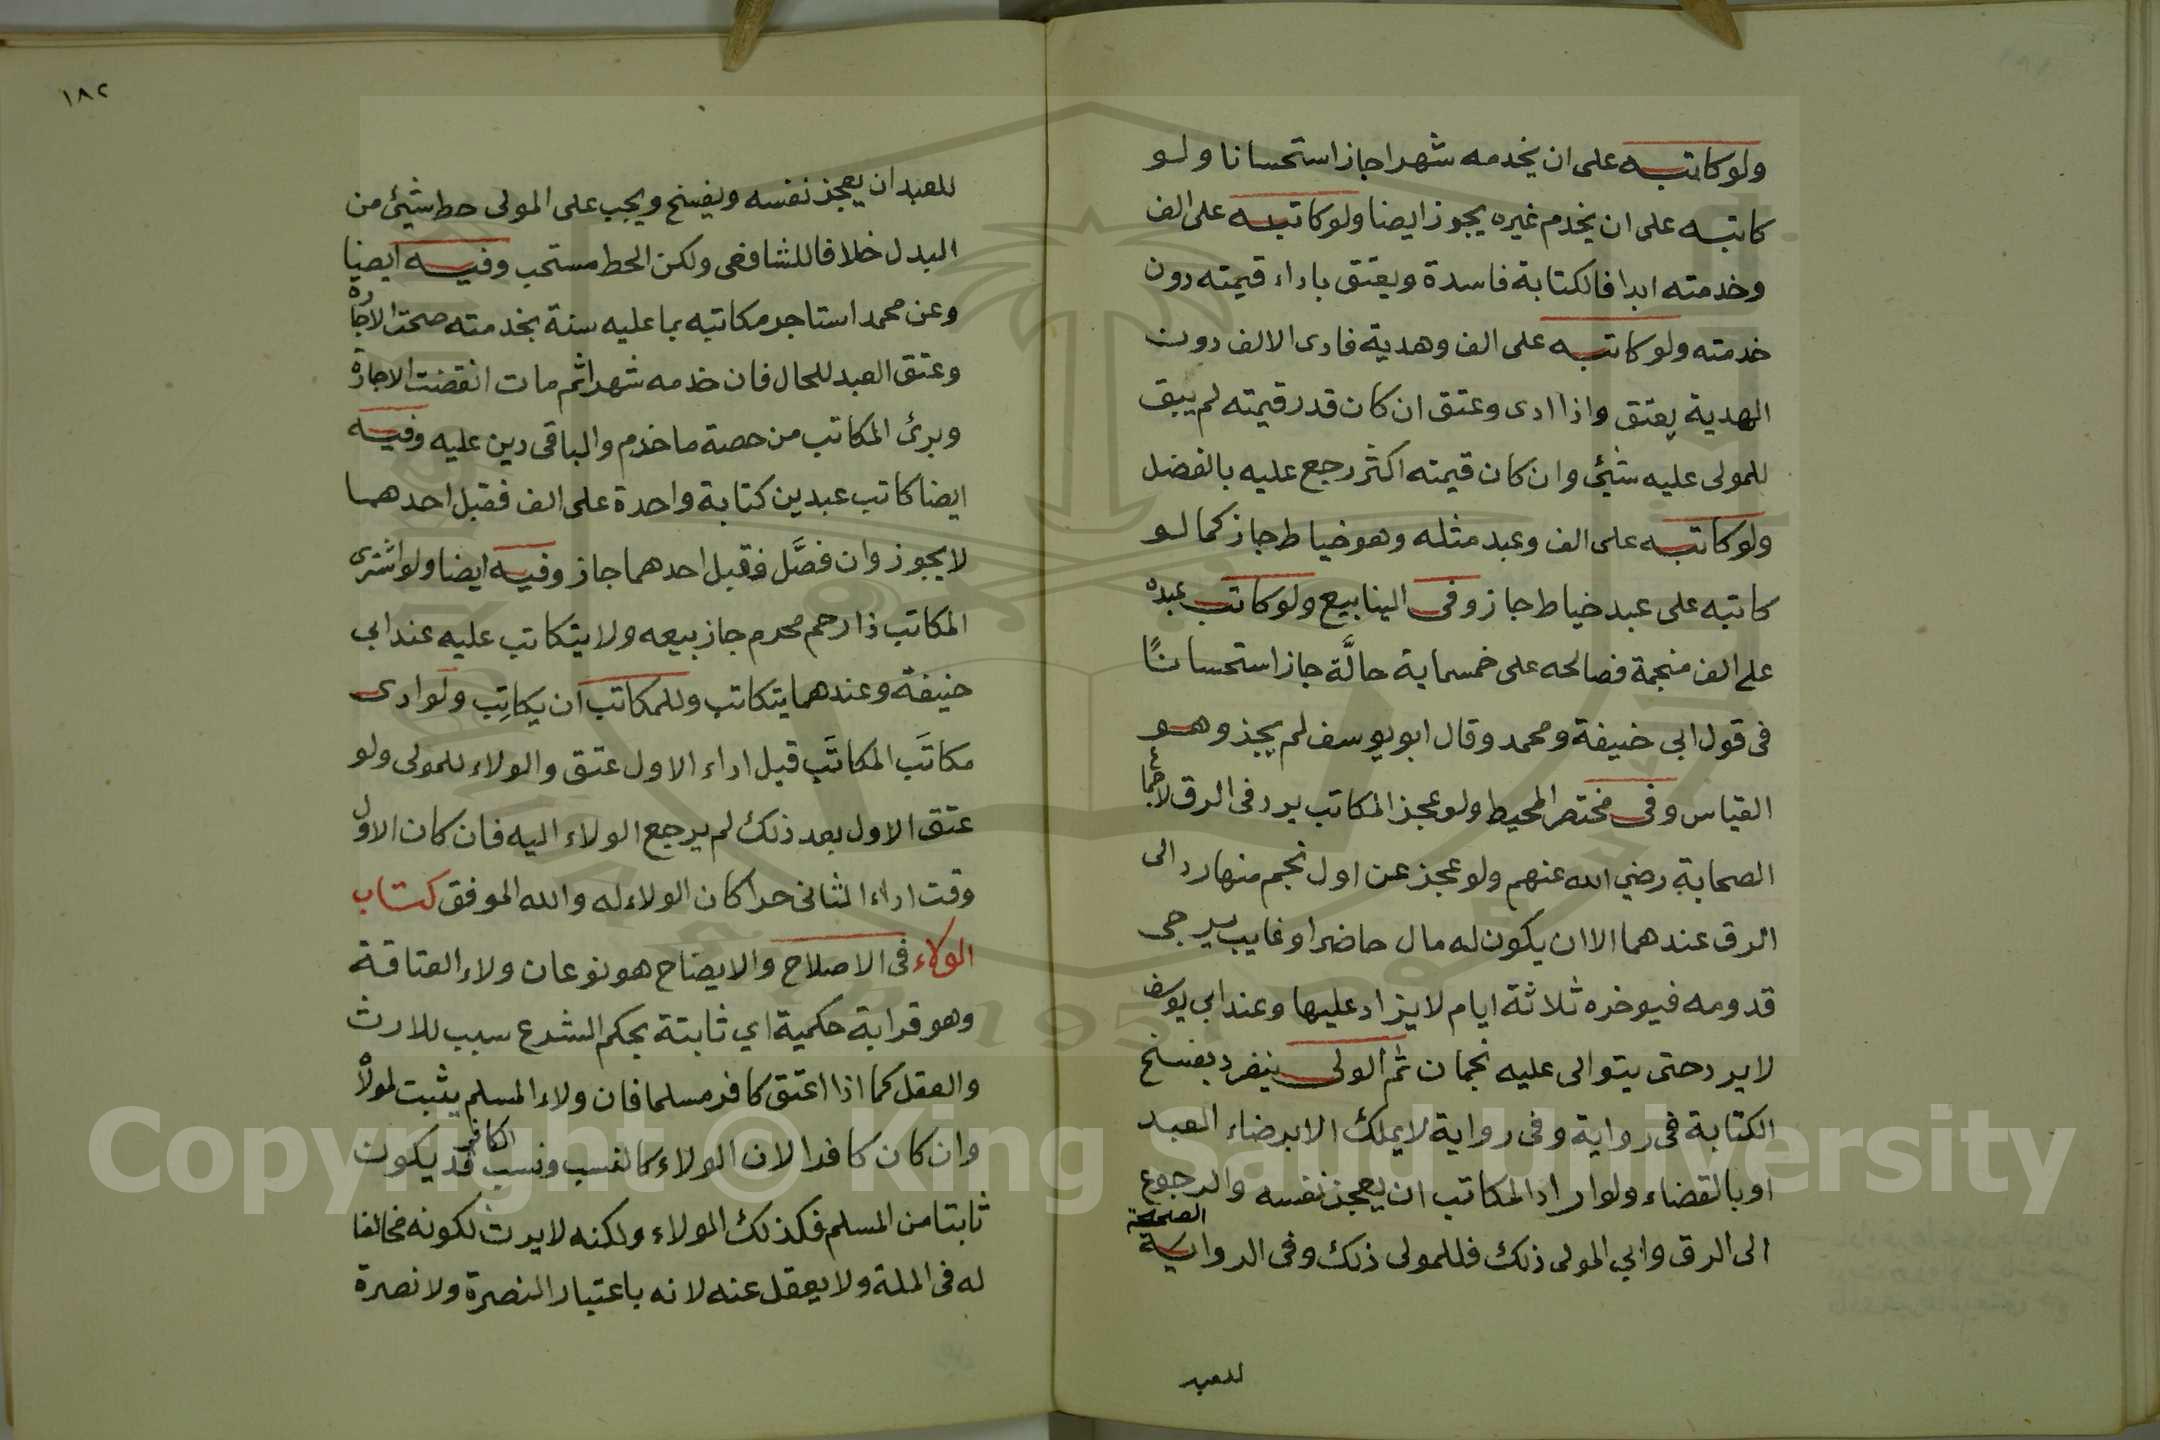 ولو كاتبه على ان يخدمه شهرا جاز استحسانا ولو
كاتبه على ان يخدم غيره يجوز ايضا ولو كاتبه على الف
وخدمته ابدا فالكتابة فاسدة ويعتق باداء قيمته دون
خدمته ولو كاتبه على الف وهدية فادى الالف دون
الهدية يعتق واذا ادى وعتق ان كان قدر قيمته لم يبق
للمولى عليه شيئ وان كان قيمته اكثر رجع عليه بالفضل
ولو كاتبه على الف وعبد مثله وهو خياط جاز كما لو
كاتبه على عبد خياط جاز وفى الينابيع ولو كاتب عبده
على الف منجمة فصالحه على خمسماية حالَّة جاز استحسانًا
فى قول ابى حنيفة ومحمد وقال ابو يوسف لم يجز وهو
القياس وفى مختصر المحيط ولو عجز المكاتب يرد فى الرق لاجماع
الصحابة رضي الله عنهم ولو عجز عن اول نجم منها رد الى
الرق عندهما الا ان يكون له مال حاضر او غايب يرجى
قدومه فيوخره ثلاثة ايام لا يزاد عليها وعند ابي يوسف
لا يرد حتى يتوالى عليه نجمان ثم المولى ينفرد بفسخ
الكتابة فى رواية وفى رواية لا يملك الا برضاء العبد
او بالقضاء ولو اراد المكاتب ان يعجز نفسه والرجوع
الى الرق وابي المولى ذلك فللمولى ذلك وفى الرواية الصحيحة
للعبد
١٨٢
للعبد ان يعجز نفسه ويفسخ ويجب على المولى حط شيئ من
البدل خلافا للشافعى ولكن الحط مستحب وفيه ايضا
وعن محمد استاجر مكاتبه بما عليه سنة بخدمته صحت الاجارة
وعتق العبد للحال فان خدمه شهرا ثم مات انقضت الاجارة
وبرئ المكاتب من حصة ما خدم والباقى دين عليه وفيه
ايضا كاتب عبدين كتابة واحدة على الف فقبل احدهما
لا يجوز وان فصَّل فقبل احدهما جاز وفيه ايضا ولو اشترى
المكاتب ذا رحم محرم جاز بيعه ولا يتكاتب عليه عند ابى
حنيفة وعندهما يتكاتب وللمكاتب ان يكاتِب ولو ادى
مكاتَب المكاتَب قبل اداء الاول عتق والولاء للمولى ولو
عتق الاول بعد ذلك لم يرجع الولاء اليه فان كان الاول
وقت اداء الثانى حرا كان الولاء له والله الموفق كتاب
الولاء فى الاصلاح والايضاح هو نوعان ولاء العتاقة
وهو قرابة حكمية اي ثابتة بحكم الشرع سبب للارث
والعقل كما اذا اعتق كافر مسلما فان ولاء المسلم يثبت لمولاه
وان كان كافرا لان الولاء كالنسب ونسب الكافر قد يكون
ثابتا من المسلم فكذلك الولاء ولكنه لا يرث لكونه مخالفا
له فى الملة ولا يعقل عنه لانه باعتبار النصرة ولا نصرة
Copyright © King Saud University